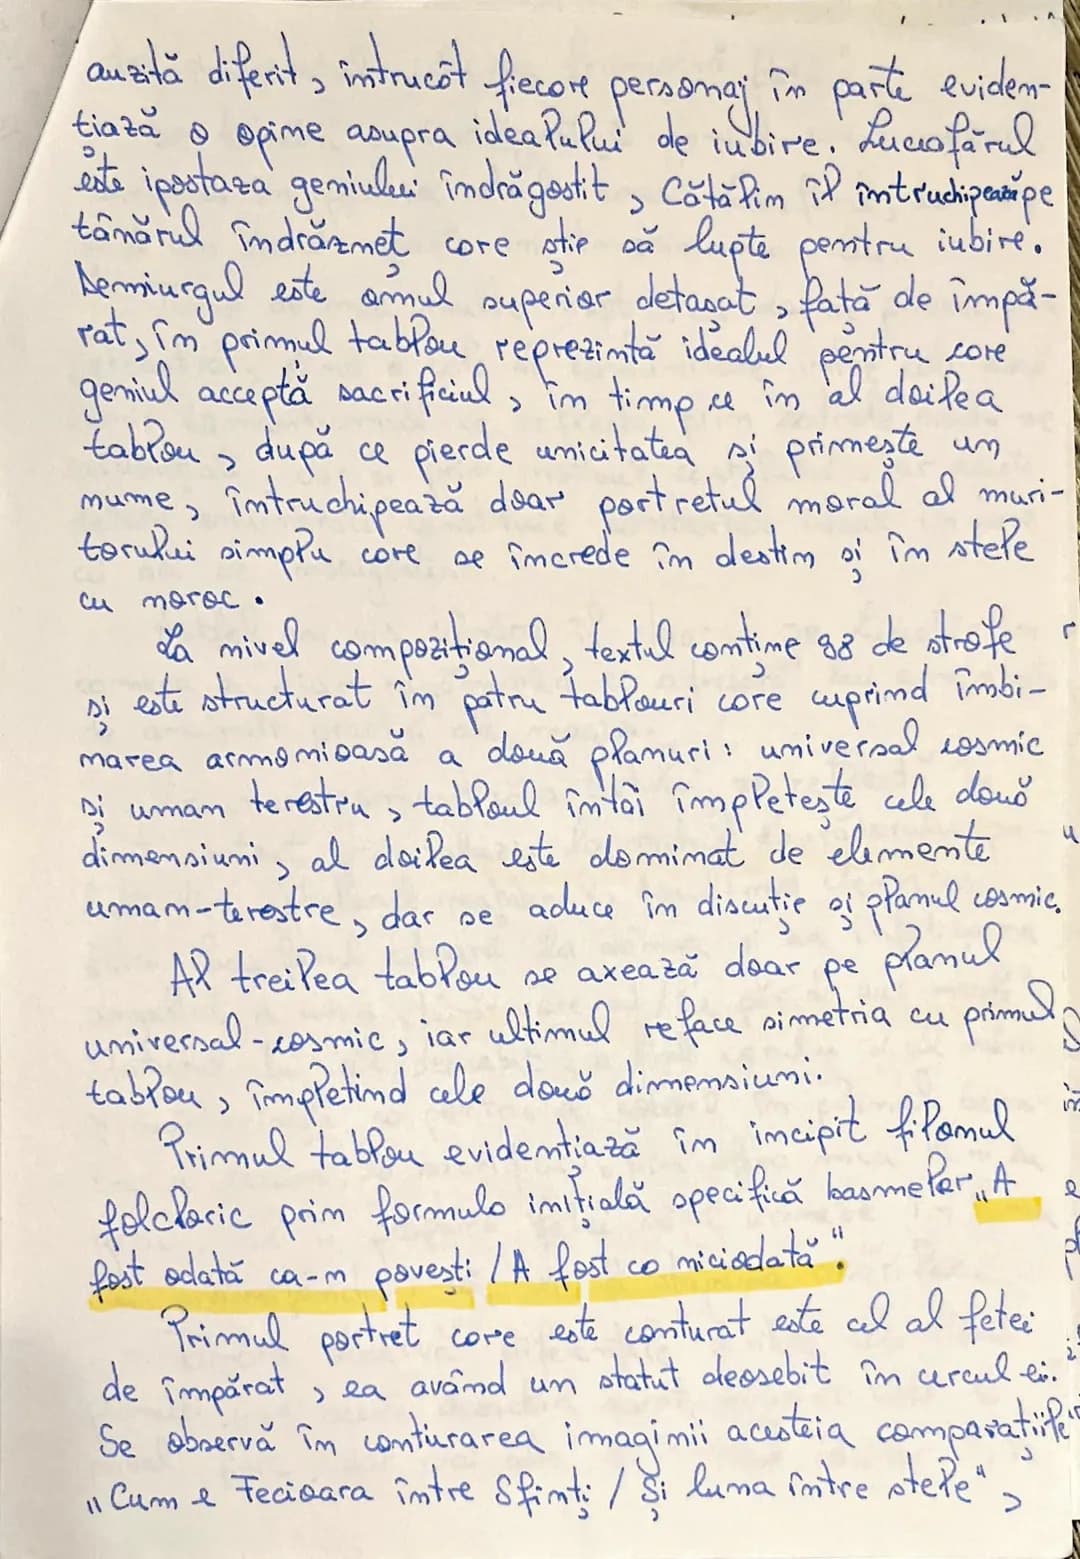 auzită diferit, întrucât fiecare personaj în parte eviden-
țiază o opinie asupra idealului de iubire. Luceafărul
este ipostaza geniului îndrăgostit, Cătălin îl întruchipează pe
tânărul îndrăzneț care știe să lupte pentru iubire.
Demiurgul este omul superior detașat, fată de împă-
rat, în primul tablou reprezintă idealul pentru care
geniul acceptă sacrificiul, în timp ce în al doilea
tablou, după ce pierde unicitatea și primește un
nume, întruchipează doar portretul moral al muri-
torului simplu care se încrede în destin și în stele
cu noroc.
La nivel compozițional, textul conține 98 de strofe
și este structurat în patru tablouri care cuprind îmbi-
narea armonioasă a două planuri: universal cosmic
și uman terestru, tabloul întâi împletește cele două
dimensiuni, al doilea este dominat de elemente
uman-terestre, dar se aduce în discuție și planul cosmic.
Al treilea tablou se axează doar pe planul
universal-cosmic, iar ultimul reface simetria cu primul
tablou, împletind cele două dimensiuni.
Primul tablou evidențiază în incipit filonul
folcloric prin formula inițială specifică basmelor „A
fost odată ca-n povești / A fost ca niciodată".
Primul portret care este conturat este cel al fetei
de împărat, ea având un statut deosebit în cercul ei.
Se observă în conturarea imaginii acesteia comparațiile
„Cum e Fecioara între Sfinți / Și luna între stele",